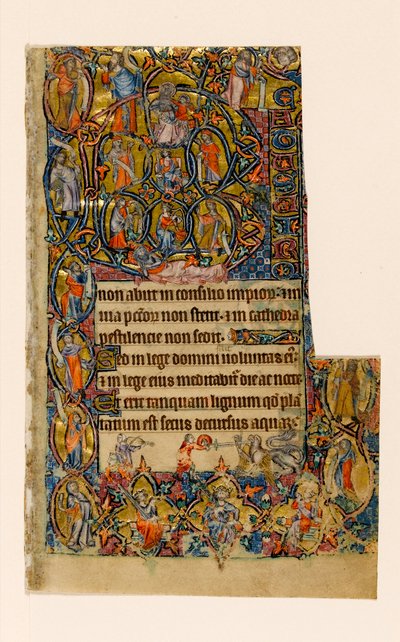 non abiit in consilio impior. ⁊ in
uia pctor̄ non stetit. ⁊ in cathedra
pestilencie non sedit.
Sed in lege domini uoluntas eiꝰ
⁊ in lege eius meditabit̄ die ac nocte
Et erit tanquam lignum qd̄ pla
tatum est secus decursus aquar̄